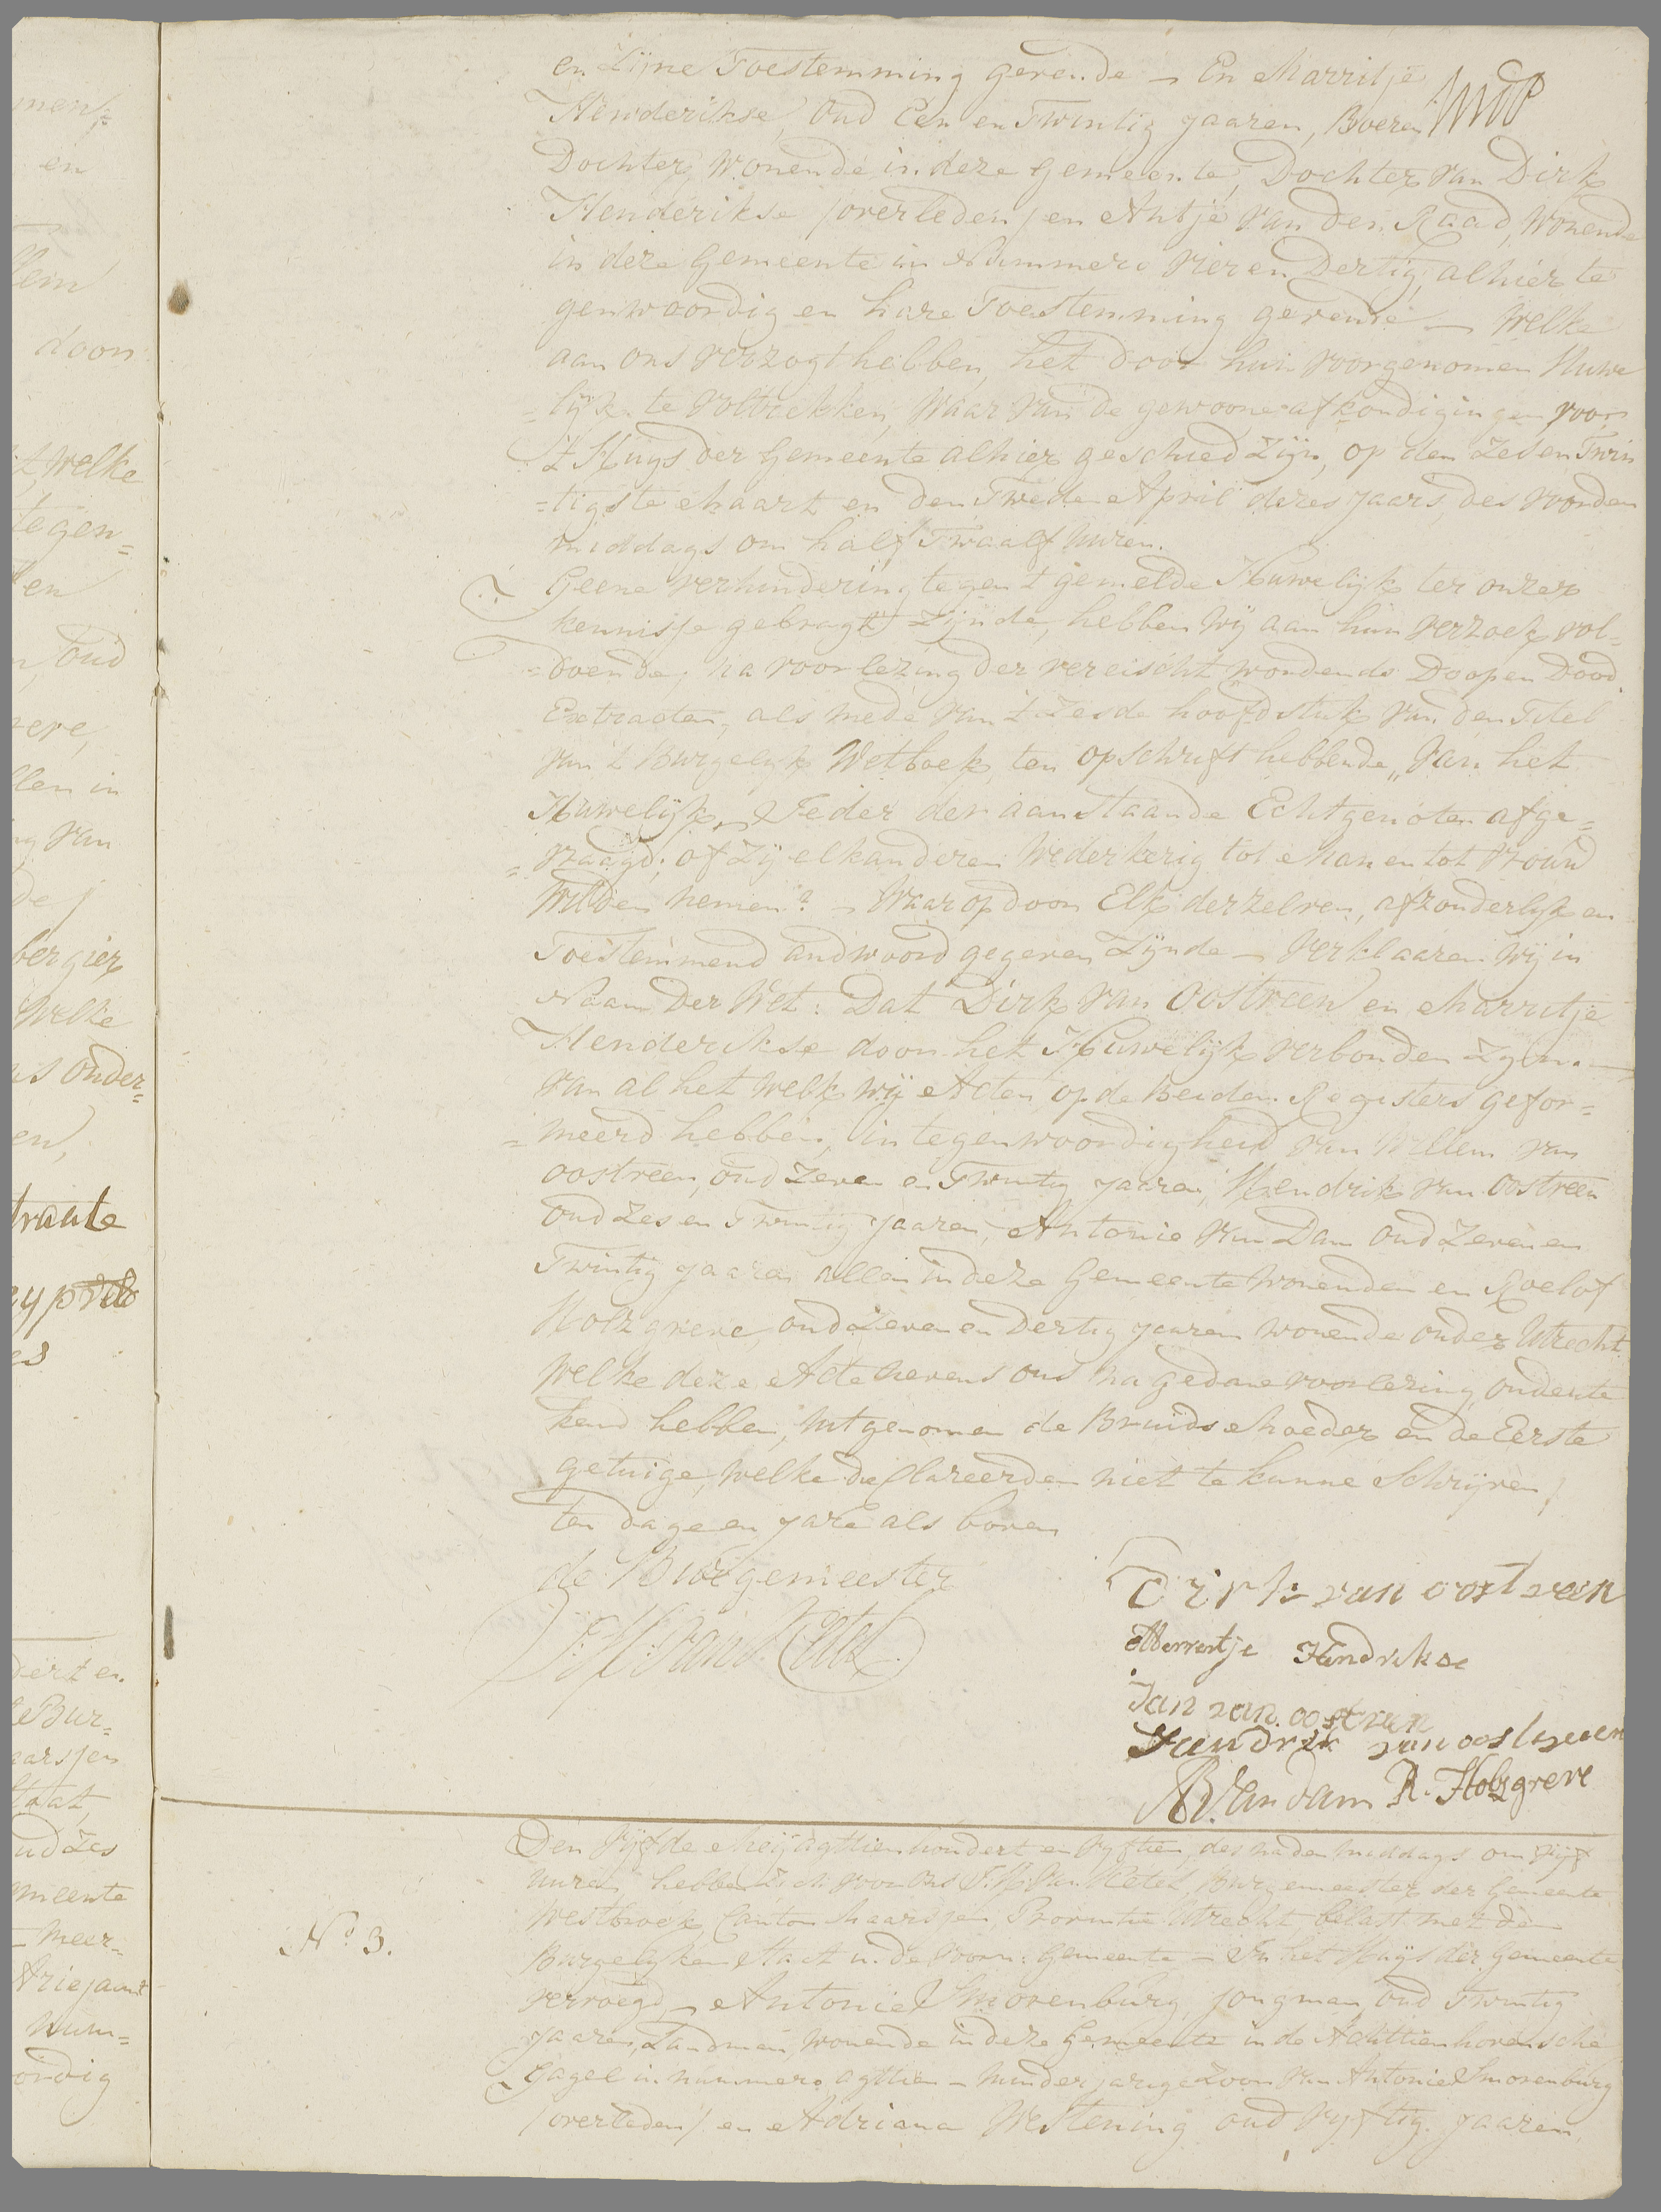 en Zijne Toestemming gevende – En Marritje
Henderikse, Oud Een en Twintig Jaaren, Boeren
Dochter, Wonende in deze Gemeente, Dochter van Dirk
Henderikse /overleden/ en Antje van den Raad, Wonende
in deze Gemeente in Nummero Vier en Dertig, alhier te
genwoordig en hare Toestemming gevende – Welke
aan ons verzogt hebben, het door hun voorgenomen Huwe
=lijk te voltrekken, Waar van de gewoone afkondigingen voor
't Huys der Gemeente alhier geschied Zijn, op den Zes en Twin
=tigste Maart en den Twede April dezes Jaars, des voorden
middags om half Twaalf Uuren.
Geene verhindering tegen 't gemelde Huwelijk ter onzer
kennisse gebragt Zijnde, hebben Wij aan hun verzoek vol-
=doende, na voorlezing der vereischt wordende Doop en Dood
Extracten, als mede van 't Zesde hoofdstuk van den Titel
van 't Burgelijk Wetboek, ten opschrift hebbende, „Van het
Huwelijk„ Ieder der aanstaande Echtgenoten afge=
=vraagd; of Zij elkanderen Wederkerig tot Man en tot Vrouw
Wilden nemen? – Waar op door Elk derzelven, afzonderlijk en
Toestemmend andwoord gegeven Zijnde – Verklaaren Wij in
Naam Der Wet: Dat Dirk van Oostreen en Marritje
Henderikse door het Huwelijk verbonden Zijn. –
van al het Welk wij Acten op de Beiden Registers gefor=
=meerd hebben, in tegenwoordigheid van Willem van
oostreen, oud Zeven en Twintig Jaaren, Hendrik van Oostreen
Oud Zes en Twintig Jaaren, Antonie van Dam Oud Zeven en
Twintig Jaaren allen in deze Gemeente Wonenden en Roelof
Holzgreve, oud Zeven en Dertig Jaaren wonende onder Utrecht.
Welke deze Acte nevens ons na gedane voorlezing onderte
kend hebben, uitgenomen de Bruids Moeder en de Eerste
getuige, welke declareerden niet te kunne Schrijven,
ten dage en Jare als boven
de Burgemeester
Dirk van oostreen
Marrertje Hendrikse
Jan van oostreen
Handrik van oostreen
A V. Van dam R. Holzgreve
Den Vijfde Meij agttienhondert en Vyftien, des nadenmiddags om Vijf
uuren, hebben Zich voor ons Burgemeester der Gemeente
Westbroek, Canton Maarssen, Provintie Utrecht, belast met den
Burgelyken Staat in de voorn: Gemeente – In het Huijs der Gemeente
vervoegd – Antonie Smorenburg, Jongman, oud Twintig
Jaaren, Landman, Wonende in deze Gemeente in de Achttienhovensche
Gagel in nummero agttien – minderjarige Zoon van Antonie Smorenburg
/overleden/ en Adriana Westening oud Vyftig Jaaren
No 3.
en
doon
't Welke
tegen=
en
oud
llen in
van
bergier
Welke
ns onder=
en,
Bur=
aarssen
taat,
ud Zes
meente
Meer=
Ariejaantje
Num=
ordig